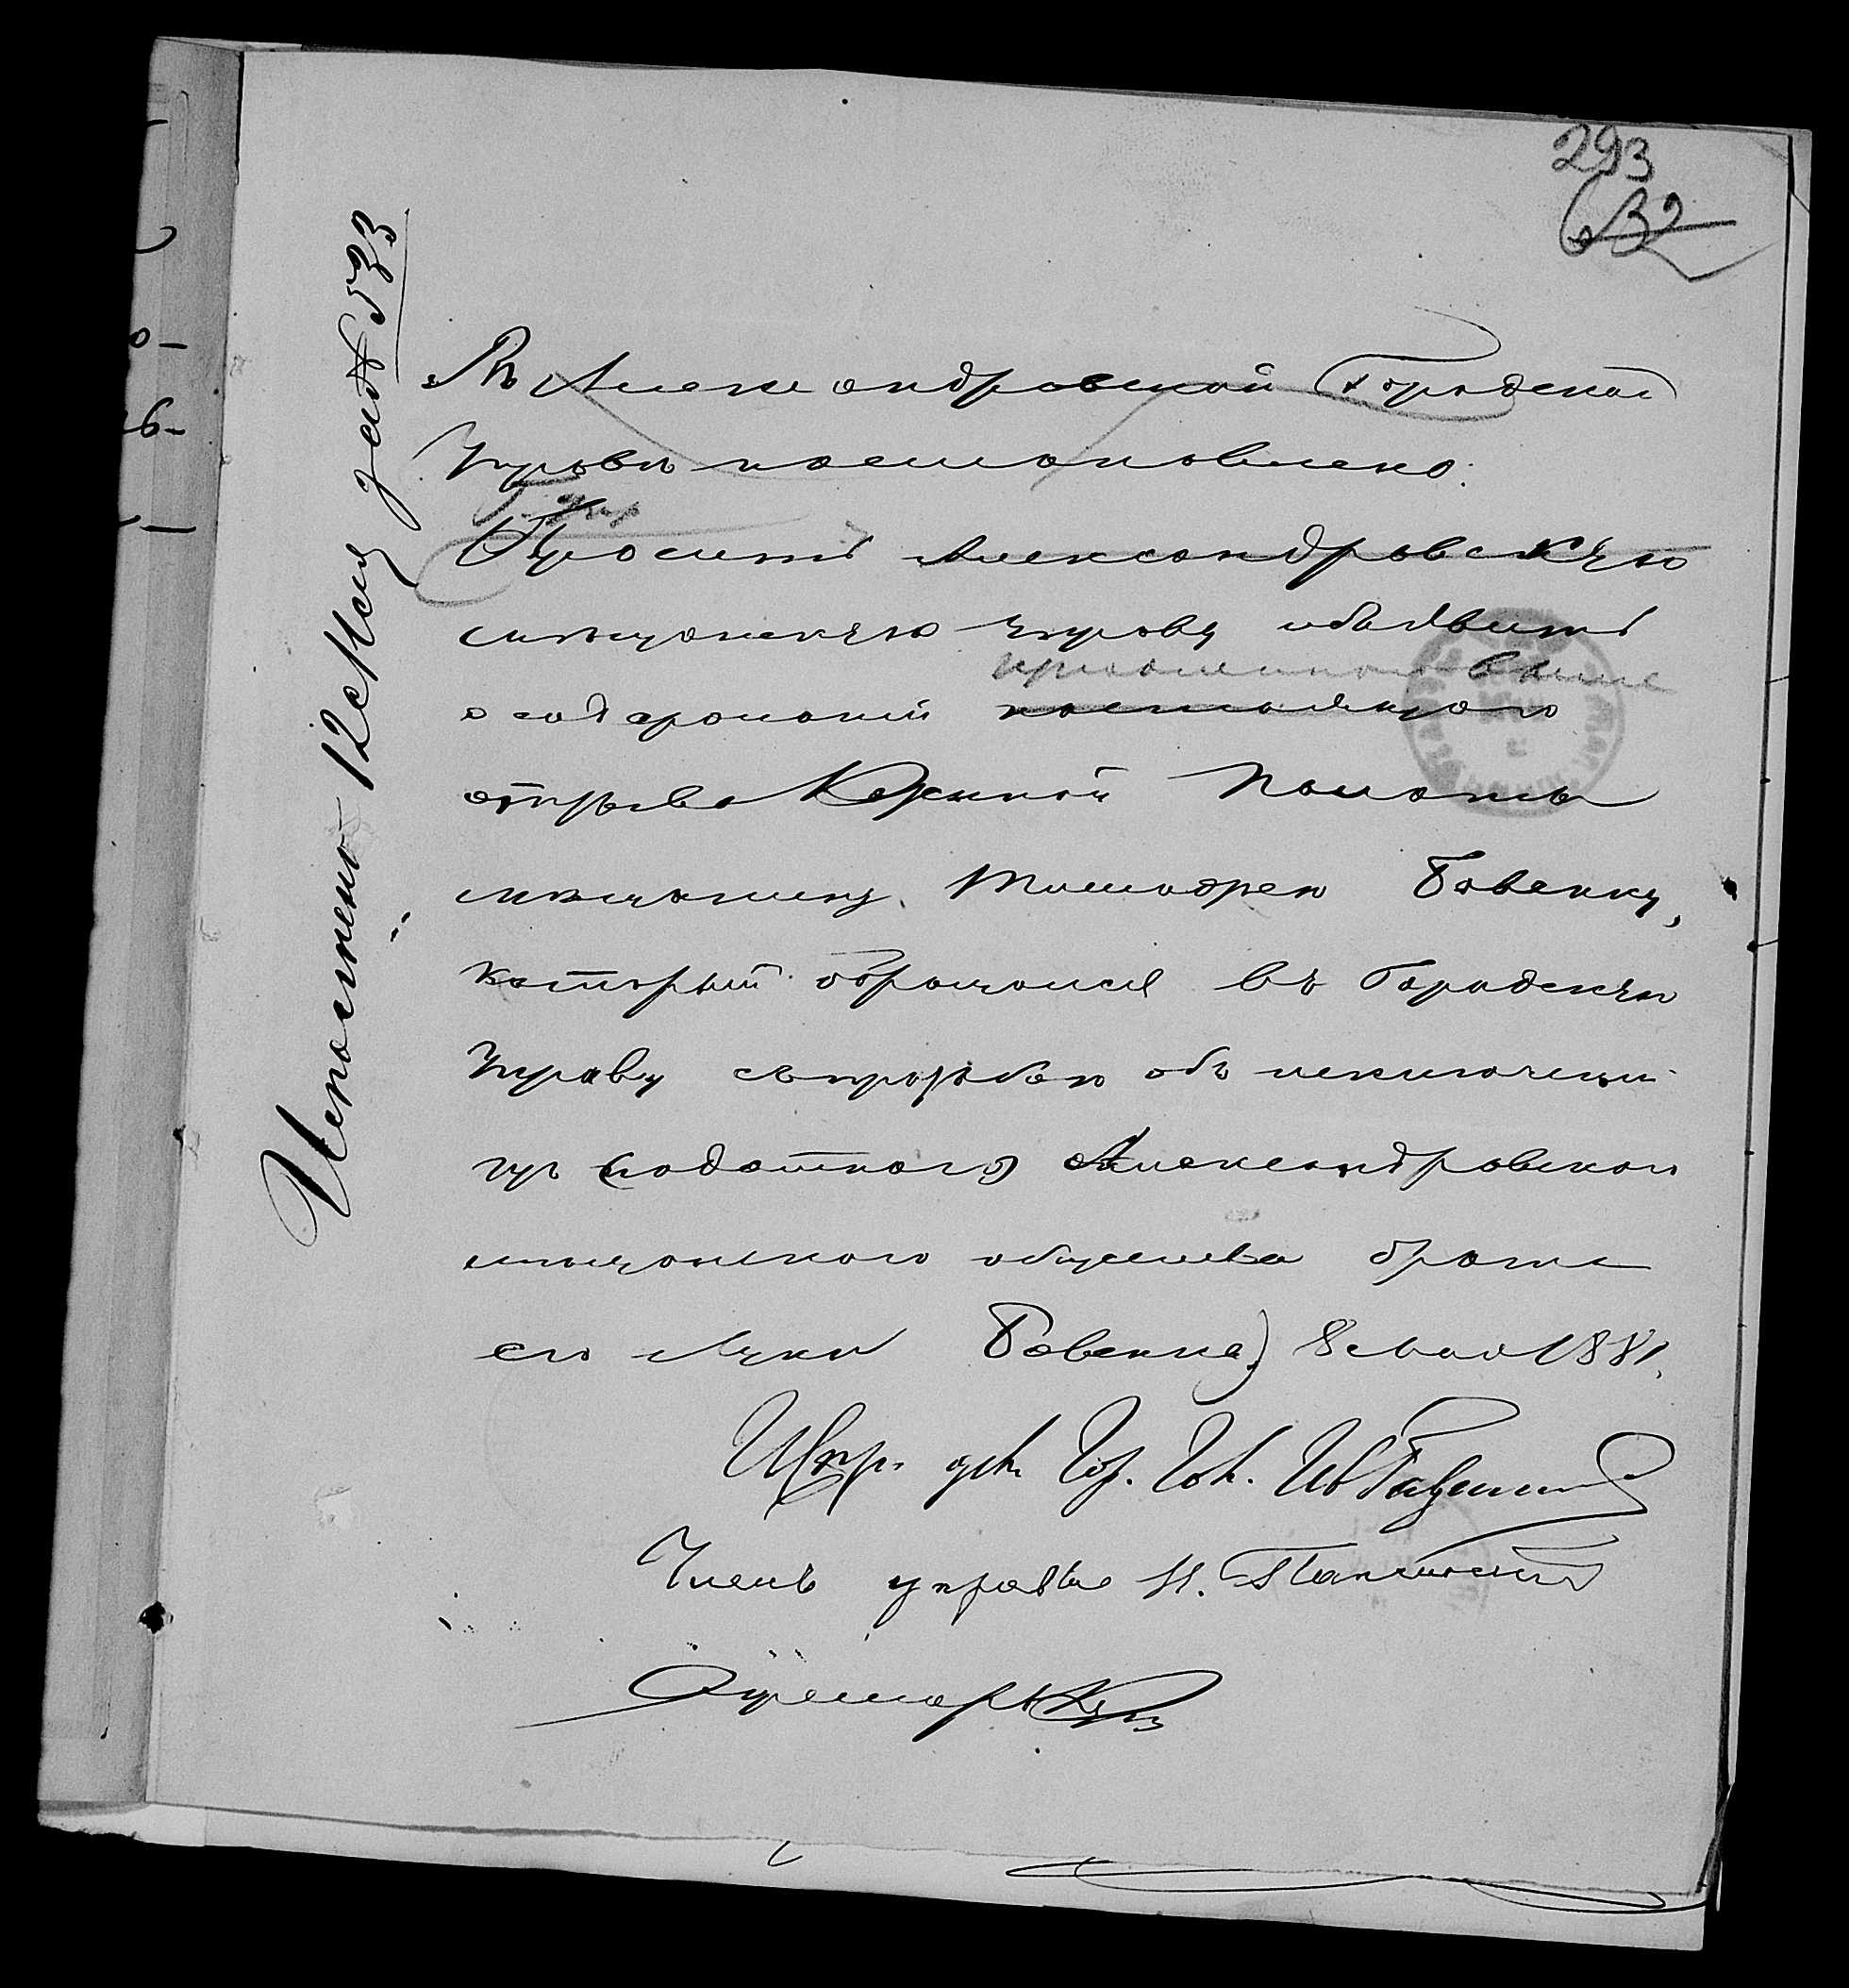 293
632
Исполнено 12 Мая за № 533
Въ Александровской Городской
Управѣ постановлено:
Просить Александровскую
мѣщанскую управу объявить
о содержаніи настоящаго
отзыва Казенной Палаты
мѣщанину Тимофею Бовенку,
который обращался въ Городскую
Управу съ просьбою объ исключеніи
изъ податнаго Александровскаго
мѣщанскаго общества брата
его Луки Бовенка) 8 Мая 1881.
Испр. дол. Гор. Гол.
Членъ управы
Секретарь